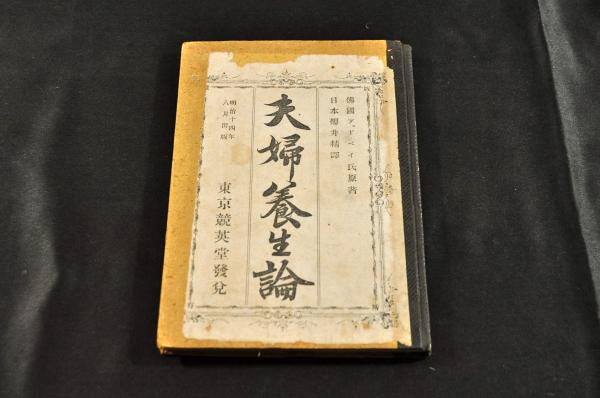 佛國ア、ドベイ氏原著
日本櫻井精譯
夫婦養生論
明治十四年
八月出版
東京競英堂發兌